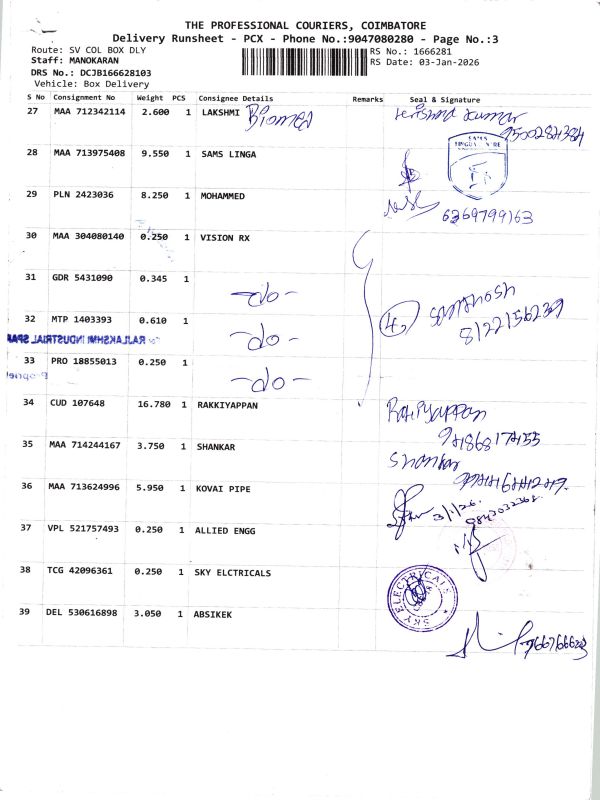 THE PROFESSIONAL COURIERS, COIMBATORE
Delivery Runsheet - PCX - Phone No.:9047080280 - Page No.:3
Route: SV COL BOX DLY
RS No.: 1666281
Staff: MANOKARAN
RS Date: 03-Jan-2026
DRS No.: DCJB166628103
Vehicle: Box Delivery
S No Consignment No Weight PCS Consignee Details Remarks Seal & Signature
27 MAA 712342114 2.600 1 LAKSHMI Biomed
28 MAA 713975408 9.550 1 SAMS LINGA
29 PLN 2423036 8.250 1 MOHAMMED
6369799163
30 MAA 304080140 0.250 1 VISION RX
31 GDR 5431090 0.345 1
-do-
32 MTP 1403393 0.610 1
-do-
RAJLAKSHMI INDUSTRIAL SPAR
33 PRO 18855013 0.250 1
-do-
34 CUD 107648 16.780 1 RAKKIYAPPAN
35 MAA 714244167 3.750 1 SHANKAR
Shankar
36 MAA 713624996 5.950 1 KOVAI PIPE
3/1/26.
37 VPL 521757493 0.250 1 ALLIED ENGG
38 TCG 42096361 0.250 1 SKY ELCTRICALS
SKY ELECTRICALS
39 DEL 530616898 3.050 1 ABSIKEK